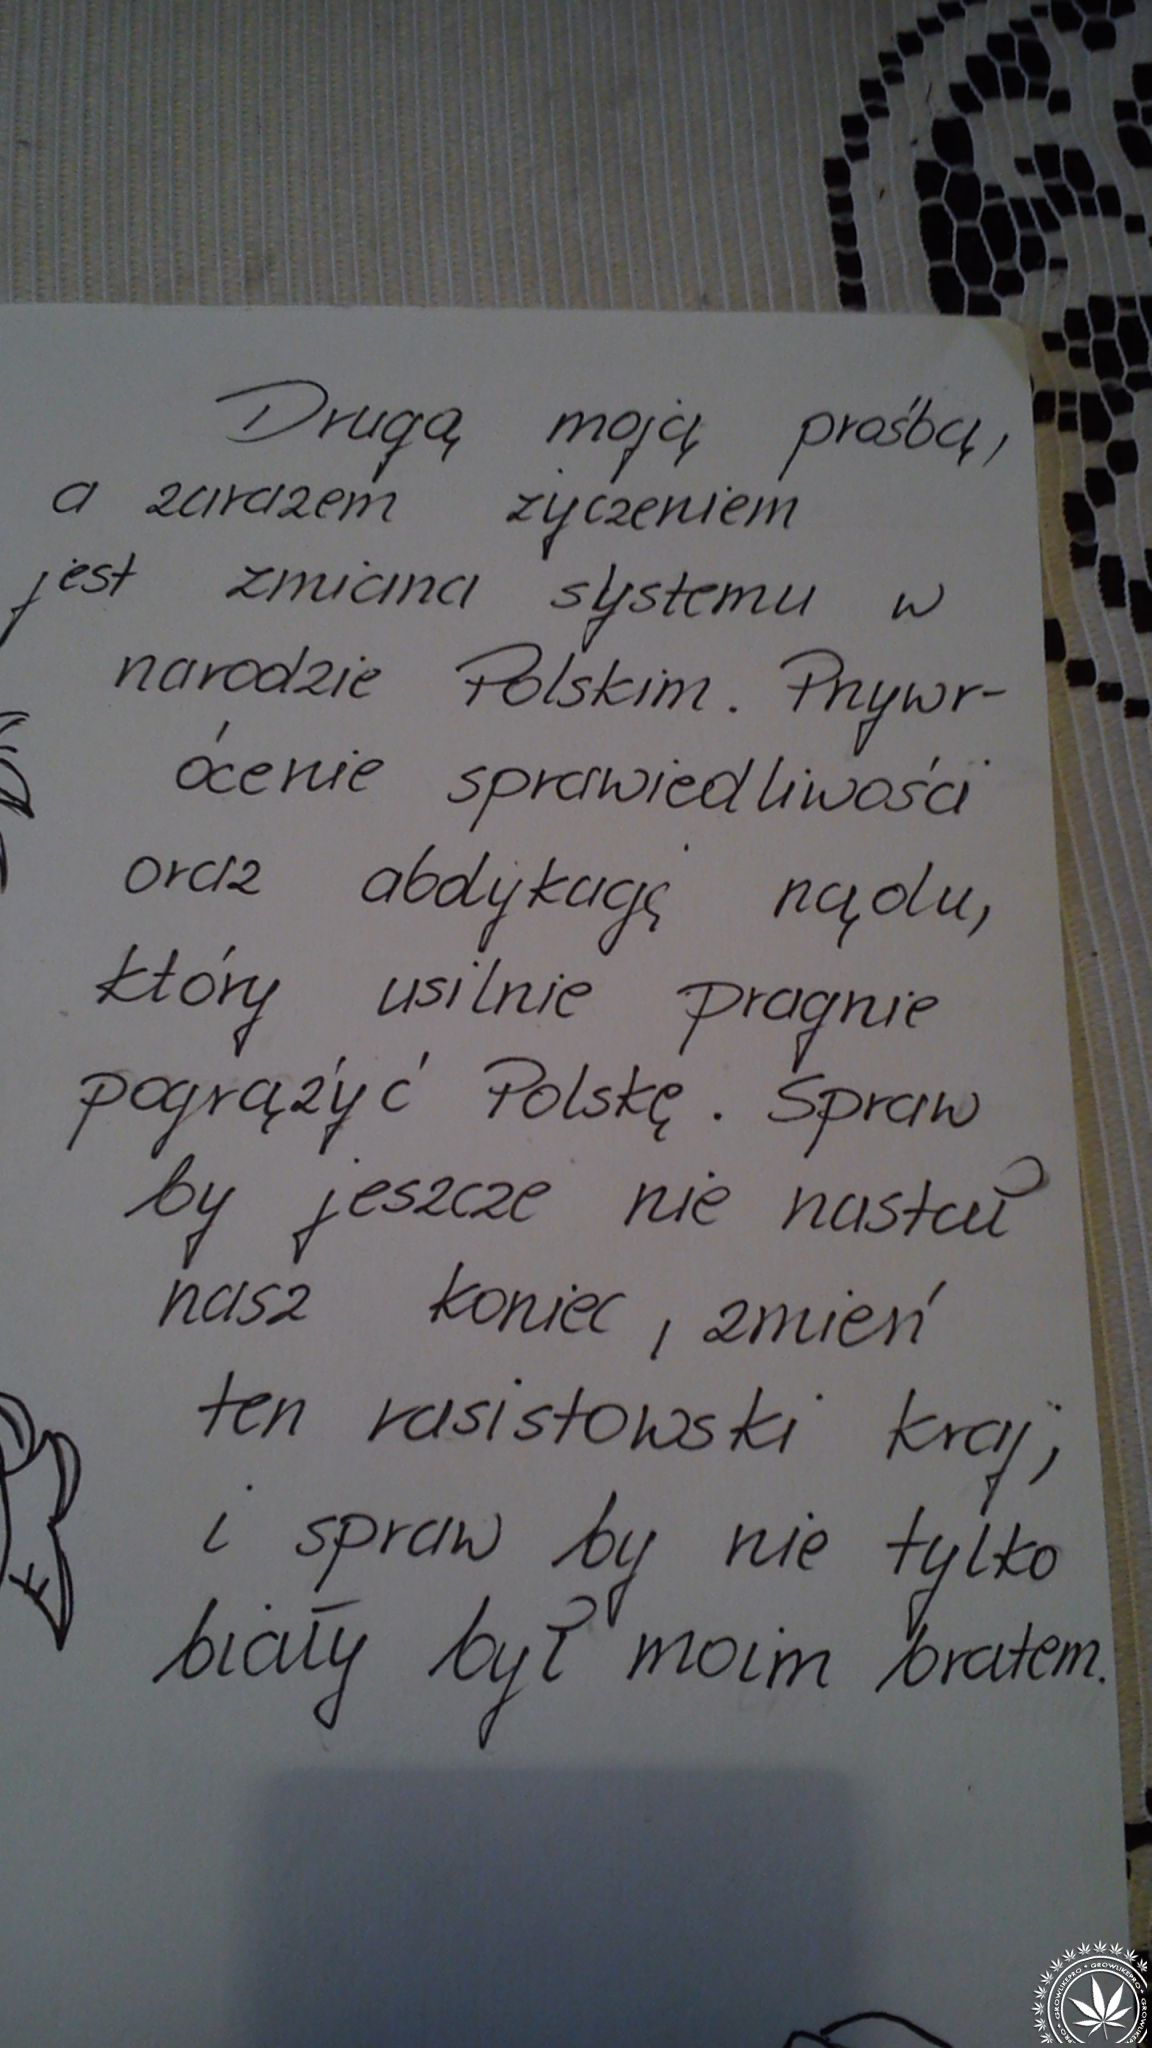 Drugą moją prośbą,
a zarazem życzeniem
jest zmiana systemu w
narodzie Polskim. Przywr-
ócenie sprawiedliwości
oraz abdykację rządu,
który usilnie pragnie
pogrążyć Polskę. Spraw
by jeszcze nie nastał
nasz koniec, zmień
ten rasistowski kraj,
i spraw by nie tylko
biały był moim bratem.
GROWLIKEPRO • GROWLIKEPRO •